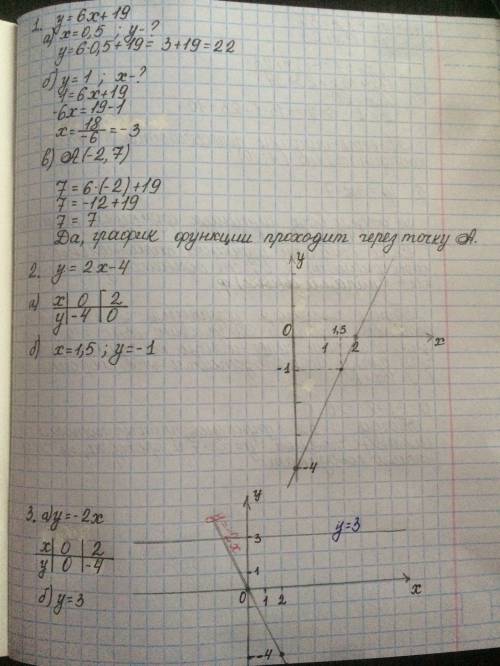 1. y=6x+19
а) x=0,5 ; y-?
y=6·0,5+19= 3+19=22
б) y=1 ; x-?
1=6x+19
-6x=19-1
x=18/-6=-3
в) A(-2,7)
7=6·(-2)+19
7=-12+19
7=7
Да, график функции проходит через точку A.
2. y=2x-4
а) x 0 2
y -4 0
б) x=1,5 ; y=-1
y
0 1,5
1 2 x
-1
-4
3. а) y=-2x
x 0 2
y 0 -4
б) y=3
y
y=-2x
y=3
3
1
x
0 1 2
-4